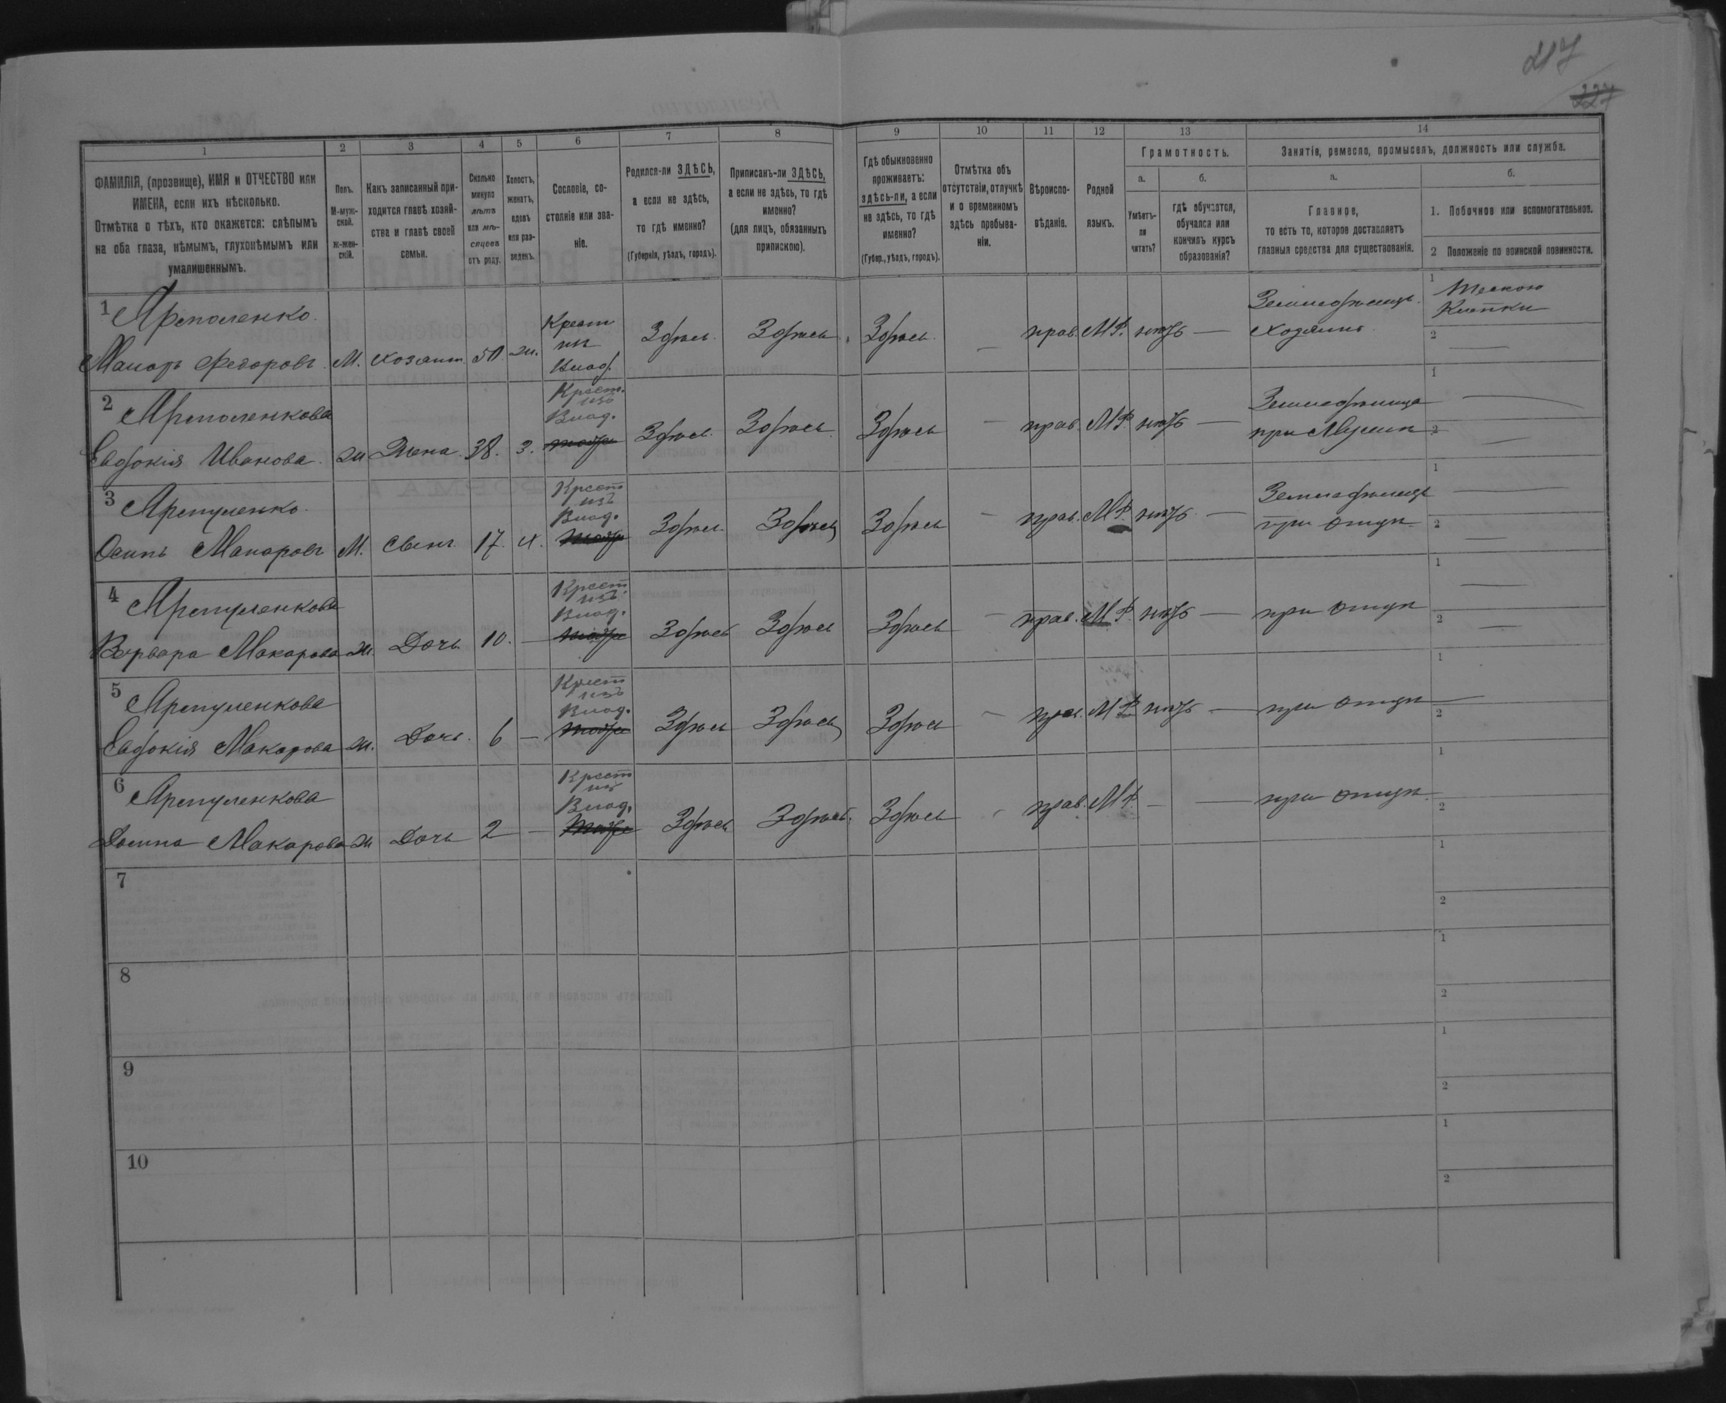 217
227
1 2 3 4 5 6 7 8 9 10 11 12 13 14
ФАМИЛІЯ, (прозвище), ИМЯ и ОТЧЕСТВО или ИМЕНА, если ихъ нѣсколько.
Отмѣтка о тѣхъ, кто окажется: слѣпымъ на оба глаза, нѣмымъ, глухонѣмымъ или умалишеннымъ.
Полъ.
М-муж-
ской.
ж-жен-
скій.
Какъ записанный при-
ходится главѣ хозяй-
ства и главѣ своей
семьи.
Сколько
минуло
лѣтъ
или мѣ-
сяцевъ
отъ роду.
Холостъ,
женатъ,
вдовъ
или раз-
веденъ.
Сословіе, со-
стояніе или зва-
ніе.
Родился-ли ЗДѢСЬ,
а если не здѣсь,
то гдѣ именно?
(Губернія, уѣздъ, городъ).
Приписанъ-ли ЗДѢСЬ,
а если не здѣсь, то гдѣ
именно?
(для лицъ, обязанныхъ
припискою).
Гдѣ обыкновенно
проживаетъ:
здѣсь-ли, а если
не здѣсь, то гдѣ
именно?
(Губер., уѣздъ, городъ).
Отмѣтка объ
отсутствіи, отлучкѣ
и о временномъ
здѣсь пребыва-
ніи.
Вѣроиспо-
вѣданіе.
Родной
языкъ.
Грамотность.
а.
Умѣетъ-
ли
читать?
б.
гдѣ обучается,
обучался или
кончилъ курсъ
образованія?
Занятія, ремесло, промыселъ, должность или служба.
а.
Главное,
то есть то, которое доставляетъ
главныя средства для существованія.
б.
1. Побочное или вспомогательное.
2 Положеніе по воинской повинности.
1
Макаръ Федоровъ М. хозяинъ 50 ж. Крест из Влад. Здѣсь Здѣсь Здѣсь — прав. МР. нѣтъ — Земледѣлецъ хозяинъ
1
2 —
2
Евдокія Иванова ж Жена 38. з. Крест. изъ Влад. Здѣсь Здѣсь Здѣсь — прав. МР нѣтъ — Земледѣлица при Мужѣ
1 —
2 —
3
Осипъ Макаровъ М. Сынъ 17. х. Крест изъ Влад. Здѣсь Здѣсь Здѣсь — прав. МР нѣтъ — Земледѣлецъ при отцѣ
1 —
2 —
4
Варвара Макарова ж. Дочь 10. — Крест изъ Влад. Здѣсь Здѣсь Здѣсь — прав. МР нѣтъ — при отцѣ
1 —
2 —
5
Евдокія Макарова ж. Дочь. 6 — Крест изъ Влад. Здѣсь Здѣсь Здѣсь — прав. МР нѣтъ — при отцѣ
1 —
2
6
Макарова ж Дочь 2 — Крест из Влад. Здѣсь Здѣсь. Здѣсь — прав. МР — — при отцѣ
1
2
7
1
2
8
1
2
9
1
2
10
1
2